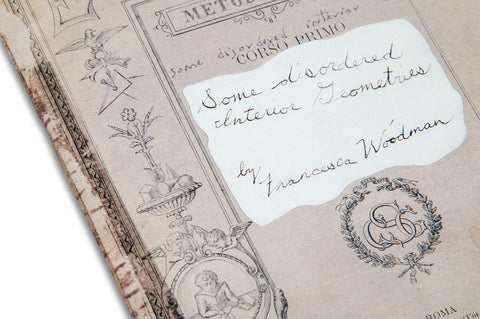 METODO
some disordered interior
CORSO PRIMO
Some disordered
Interior Geometries
by
Francesca Woodman
ROMA